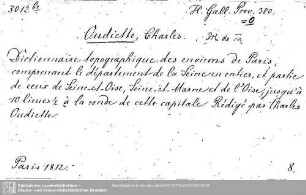 3012 le
H. Gall. Prov. 380.
=0
Oudiette, Charles.
Dictionnaire topographique des environs de Paris,
comprenant le département de la Seine en entier, et partie
de ceux de Seine-et-Oise, Seine-et-Marne et de l'Oise, jusqu'à
10 lieues ½ à la ronde de cette capitale Rédigé par Charles
Oudiette.
Paris 1812.
8.